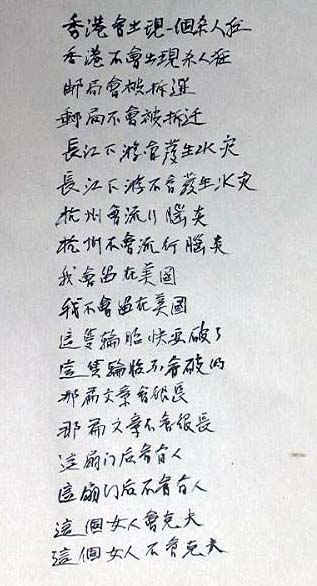 香港會出現一個杀人狂
香港不會出現杀人狂
邮局會被拆迁
郵局不會被拆迁
長江下游會發生水灾
長江下游不會發生水灾
杭州會流行腦炎
杭州不會流行腦炎
我會留在美國
我不會留在美國
這隻輪胎快要破了
這隻輪胎不會破的
那篇文章會很長
那篇文章不會很長
這扇门后會有人
這扇门后不會有人
這個女人會克夫
這個女人不會克夫